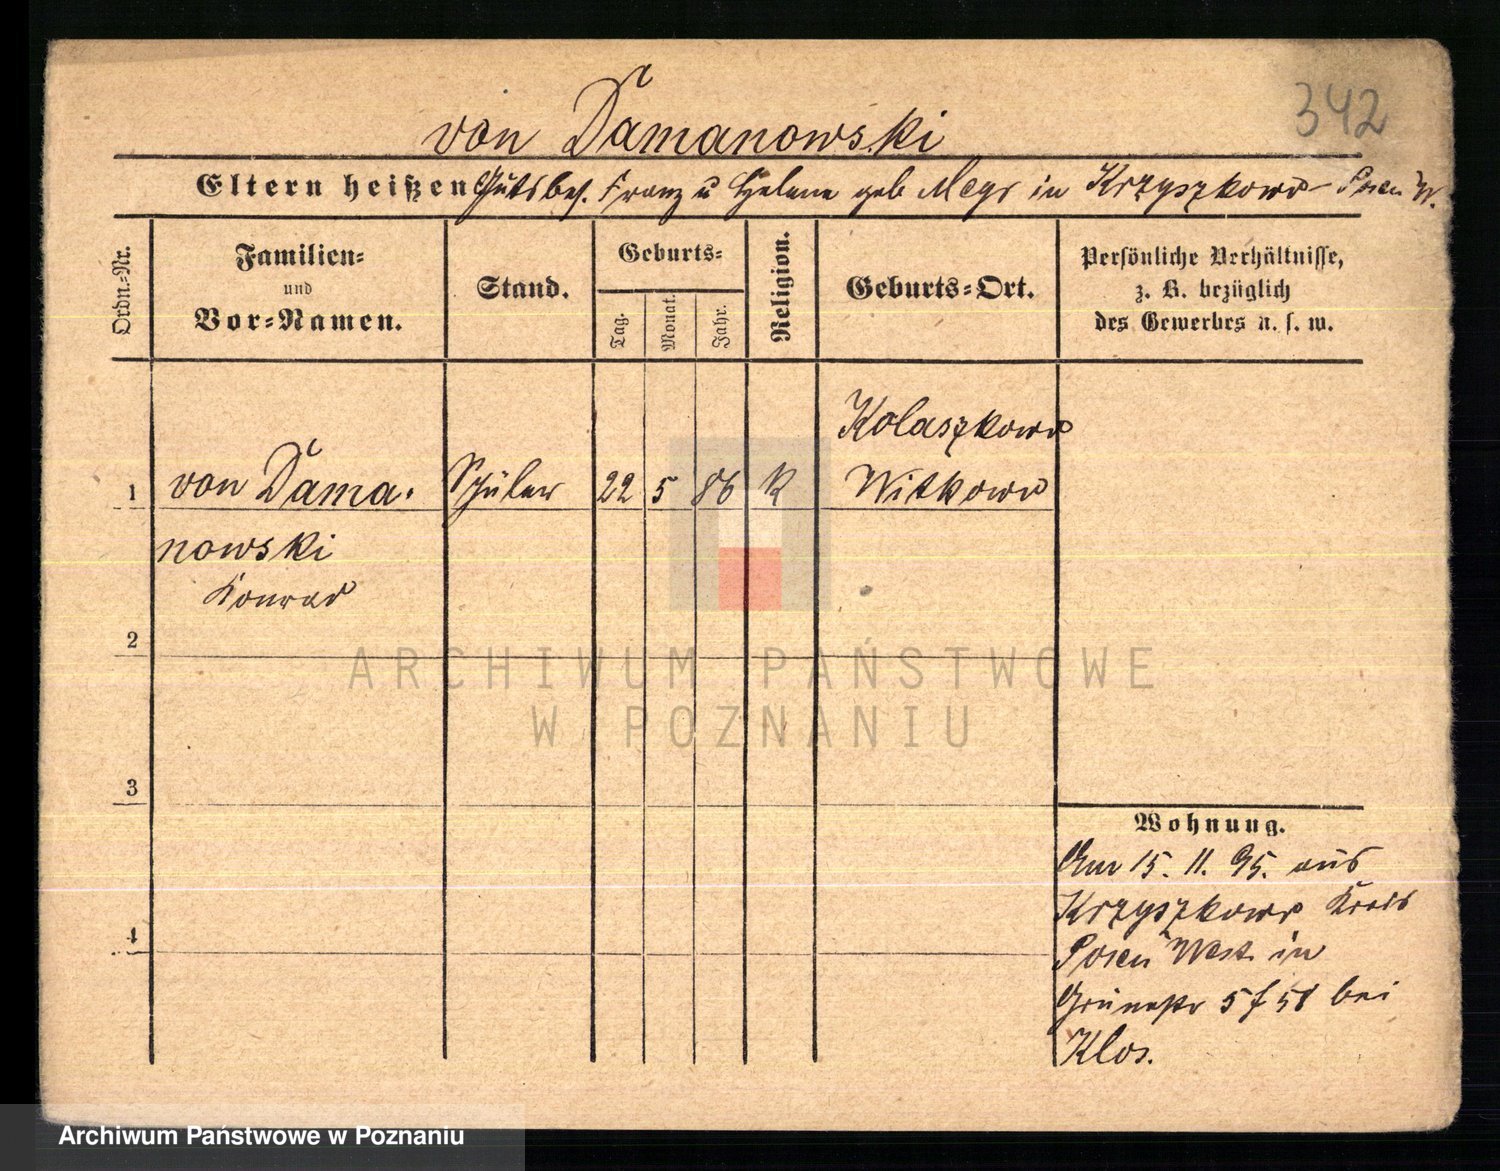 342
von Damanowski
Eltern heißen Gutsbes. Franz u Helene geb in Krzyszkowo Posen W.
Ordn.-Nr.
Familien-
und
Vor-Namen.
Stand.
Geburts-
Tag.
Monat.
Jahr.
Religion.
Geburts-Ort.
Persönliche Verhältnisse,
z. B. bezüglich
des Gewerbes u. s. w.
Kolaszkowo
1 von Dama- Schüler 22 5 86 K Witkowo
nowski
Konrad
2
ARCHIWUM PAŃSTWOWE
W POZNANIU
3
Wohnung.
Am 15. 11. 95. aus
Krzyszkowo Kreis
4
Posen West in
Grünestr 5 bei
Klos.
Archiwum Państwowe w Poznaniu